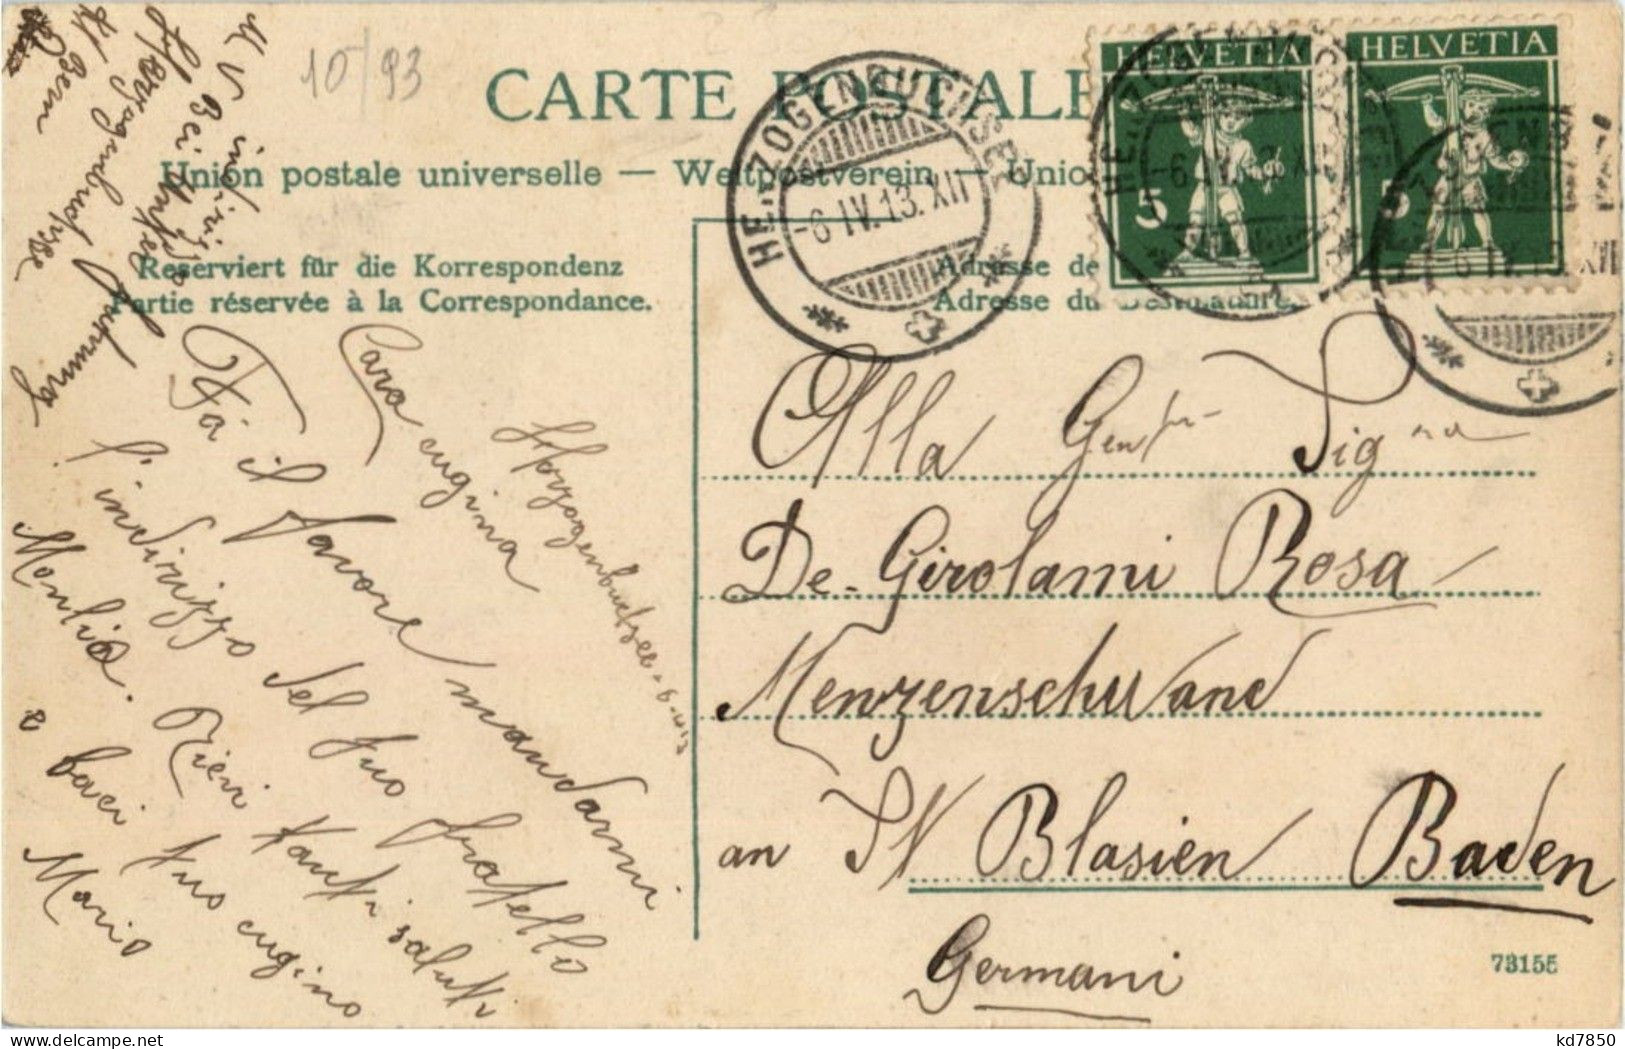 10/93
CARTE POSTALE
Union postale universelle — Weltpostverein — Unio
Reserviert für die Korrespondenz
Partie réservée à la Correspondance.
Adresse de
Adresse du Destinataire.
HERZOGENBUCHSEE
-6.IV.13.XII
HELVETIA
5
HELVETIA
5
Herzogenbuchsee - 6-4-13
Cara cugina
Fà il favore mandami
l'indirizzo del tuo fratello
Monlio. Ricevi tanti saluti
e baci tuo cugino
Mario
Alla Gen Sig
De-Girolami Rosa
Menzenschwand
an St Blasien Baden
Germani
73155
kd7850